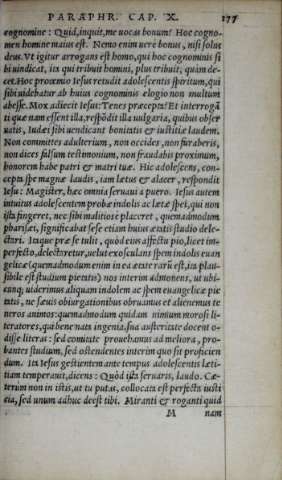 PARAPHR. CAP. X. 177
cognomine: Quid, inquit, me uocas bonum? Hoc cogno-
men homine maius est. Nemo enim uere bonus, nisi solus
deus. Vt igitur arrogans est homo, qui hoc cognominis si
bi uindicat, ita qui tribuit homini, plus tribuit, quàm de-
cet. Hoc prooemio Iesus retudit adolescentis spiritum, qui
sibi uidebatur ab huius cognominis elogio non multum
abesse. Mox adiecit Iesus: Tenes præcepta? Et interrogã
ti quæ nam essent illa, respõdit illa uulgaria, quibus obser
uatis, Iudæi sibi uendicant bonitatis & iustitiæ laudem.
Non committes adulterium, non occides, non furaberis,
non dices falsum testimonium, non fraudabis proximum,
honorem habe patri & matri tuæ. Hic adolescens, con-
cepta spe magnæ laudis, iam lætus & alacer, respondit
Iesu: Magister, hæc omnia seruaui a puero. Iesus autem
intuitus adolescentem probæ indolis ac lætæ spei, qui non
ista fingeret, nec sibi malitiose placeret, quemadmodum
pharisæi, significabat sese etiam huius ætatis studio dele-
ctari. Itaque præ se tulit, quòd eius affectu pio, licet im-
perfecto, delectaretur, uelut exosculans spem indolis euan
gelicæ (quemadmodum enim in ea ætate rarũ est, ita plau-
sibile est studium pietatis) nos interim admonens, ut ubi-
cunq; uiderimus aliquam indolem ac spem euangelicæ pie
tatis, ne sæuis obiurgationibus obruamus et alienemus te
neros animos: quemadmodum quidam nimium morosi li-
teratores, qui bene nata ingenia, sua austeritate docent o-
disse literas: sed comitate prouehamus ad meliora, pro-
bantes studium, sed ostendentes interim quo sit proficien
dum. Ita Iesus gestientem ante tempus adolescentis læti-
tiam temperauit, dicens: Quòd ista seruaris, laudo. Cæ-
terum non in istis, ut tu putas, collocata est perfecta iusti
cia, sed unum adhuc deest tibi. Miranti & roganti quid
M nam